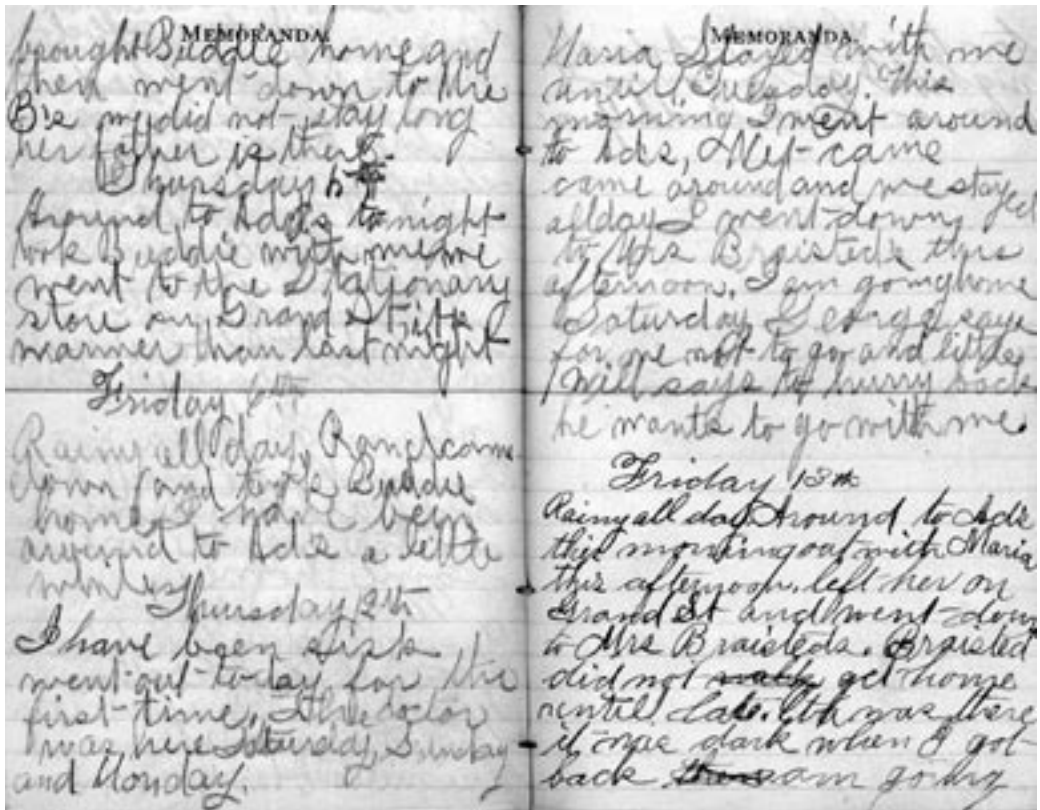 MEMORANDA.
brought Buddie home and
then went down to Mrs
B's we did not stay long
her father is there.
Thursday 5th
Around to Ad's tonight
took Buddie with me we
went to the Stationary
Store on Grand St its
warmer than last night
Friday 6th
Rainy all day, come
down and took Buddie
home. I have been
around to Ad's a little
while
Thursday 12th
I have been sick
went out today for the
first time. The doctor
was here Saturday, Sunday
and Monday.
MEMORANDA.
Maria stayed with me
until Tuesday. This
morning I went around
to Ad's, Net came
came around and we stayed
all day I went down
to Mrs Braisted's this
afternoon. I am going home
Saturday George says
for me not to go and little
Will says to hurry back
he wants to go with me.
Friday 13th
Rainy all day Around to Ad's
this morning out with Maria
this afternoon. left her on
Grand St and went down
to Mrs Braisteds. Braisted
did not get home
until late. was there
it was dark when I got
back am going